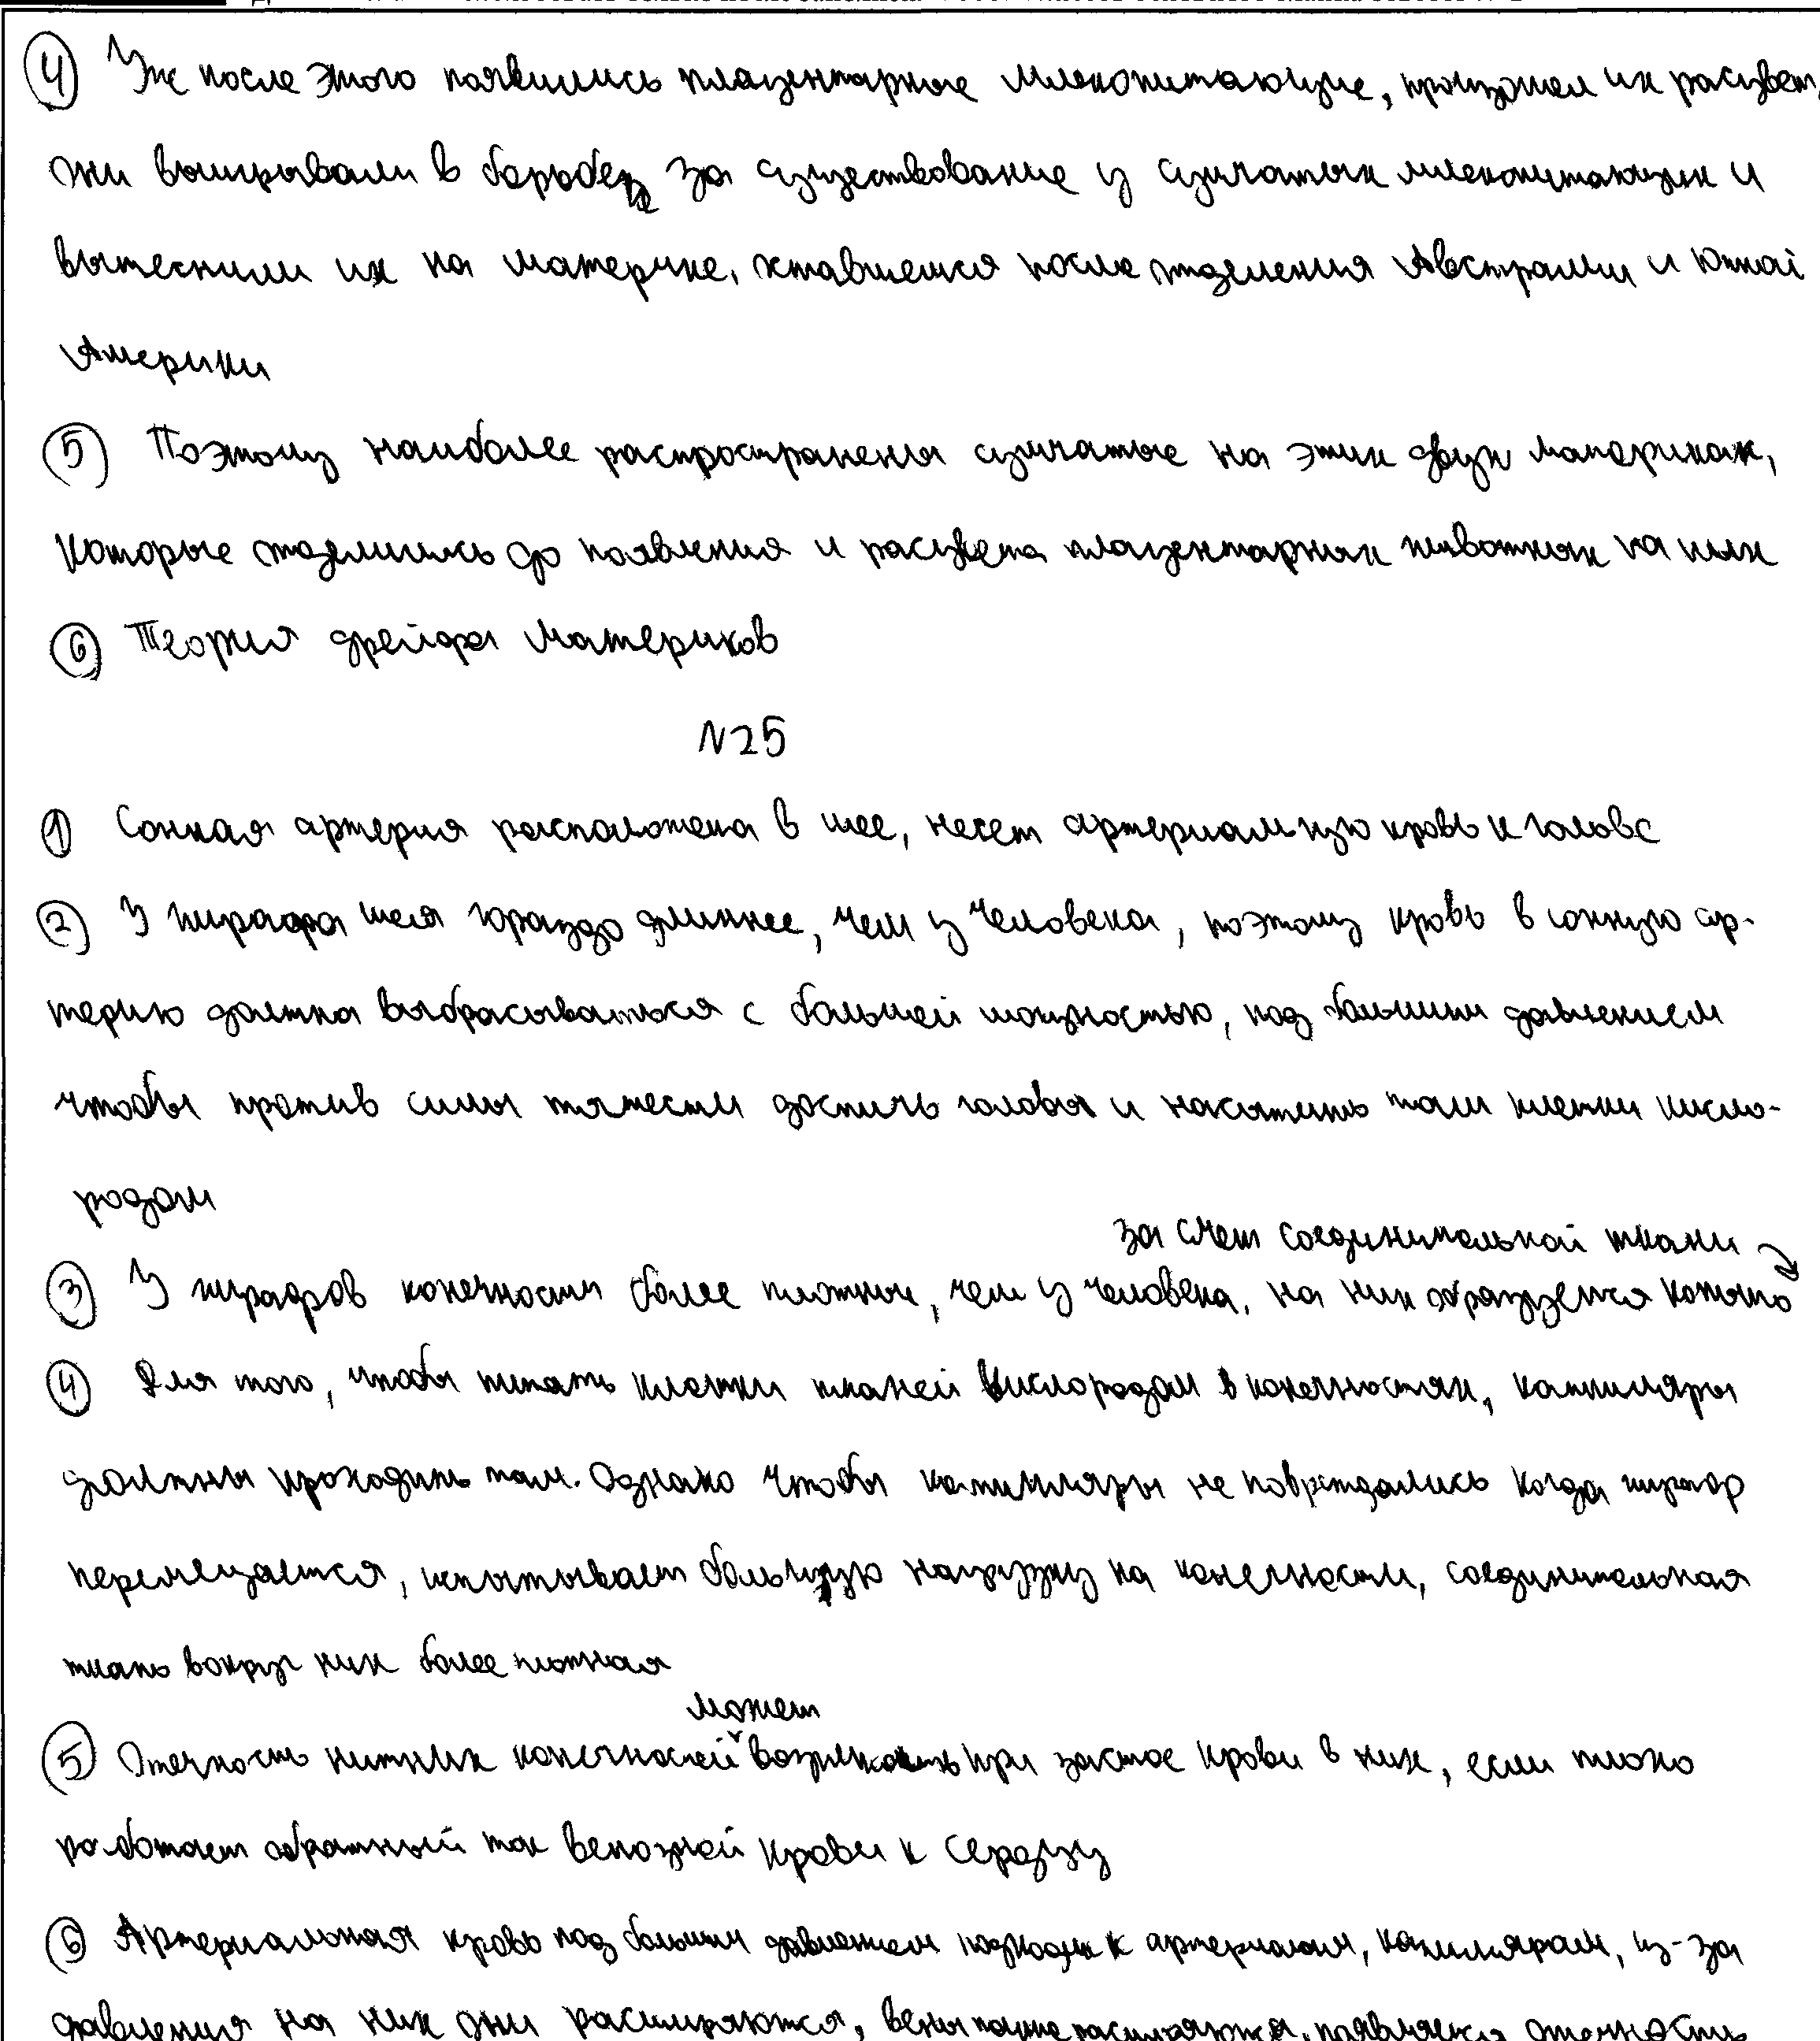 ④ Уже после этого появились плацентарные млекопитающие, произошел их расцвет,
они выигрывали в борьбе за существование у сумчатых млекопитающих и
вытеснили их на материке, оставшемся после отделения Австралии и Южной
Америки
⑤ Поэтому наиболее распространены сумчатые на этих двух материках,
которые отделились до появления и расцвета плацентарных животных на них
⑥ Теория дрейфа материков
N25
① Сонная артерия расположена в шее, несет артериальную кровь к голове
② У жирафа шея гораздо длиннее, чем у человека, поэтому кровь в сонную ар-
терию должна выбрасываться с большей мощностью, под большим давлением
чтобы против силы тяжести достичь головы и насытить там клетки кисло-
родом
за счет соединительной ткани
③ У жирафов конечности более плотные, чем у человека, на них образуется копыто
④ Для того, чтобы питать клетки тканей кислородом в конечностях, капилляры
должны проходить там. Однако чтобы капилляры не повреждались когда жираф
перемещается, испытывает большую нагрузку на конечности, соединительная
ткань вокруг них более плотная
может
⑤ Отечность нижних конечностей возникать при застое крови в них, если плохо
работает обратный ток венозной крови к сердцу
⑥ Артериальная кровь под большим давлением подходит к артериолам, капиллярам, из-за
давления на них они расширяются, вены появляется отечность